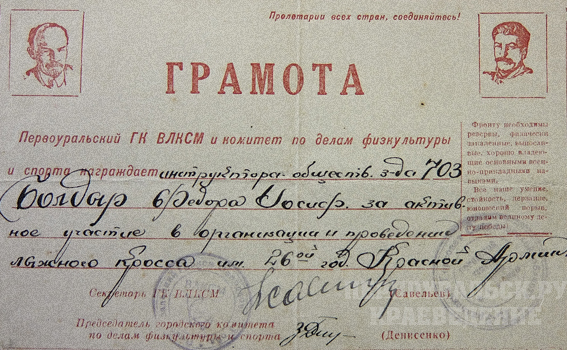 Пролетарии всех стран, соединяйтесь!
ГРАМОТА
Первоуральский ГК ВЛКСМ и комитет по делам физкультуры
и спорта награждает инструктора обществ. з-да 703
Болдыр Федора Иосиф. за актив-
ное участие в организации и проведении
лыжного кросса им. 26ой год. Красной Армии
Фронту необходимы
резервы, физически
закаленные, вынослив-
ые, хорошо владею-
щие основными воен-
но-прикладными на-
выками.
Все наше умение,
стойкость, дерзание,
юношеский порыв,
отдадим великому де-
лу победы!
Секретарь ГК ВЛКСМ (Савельев)
Председатель городского комитета
по делам физкультуры и спорта (Денисенко)
КРАЕВЕДЕНИЕ